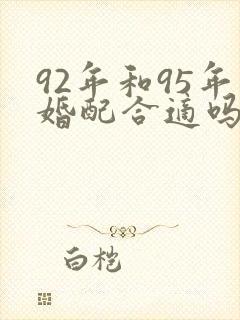 92年和95年
婚配合适吗
白桤